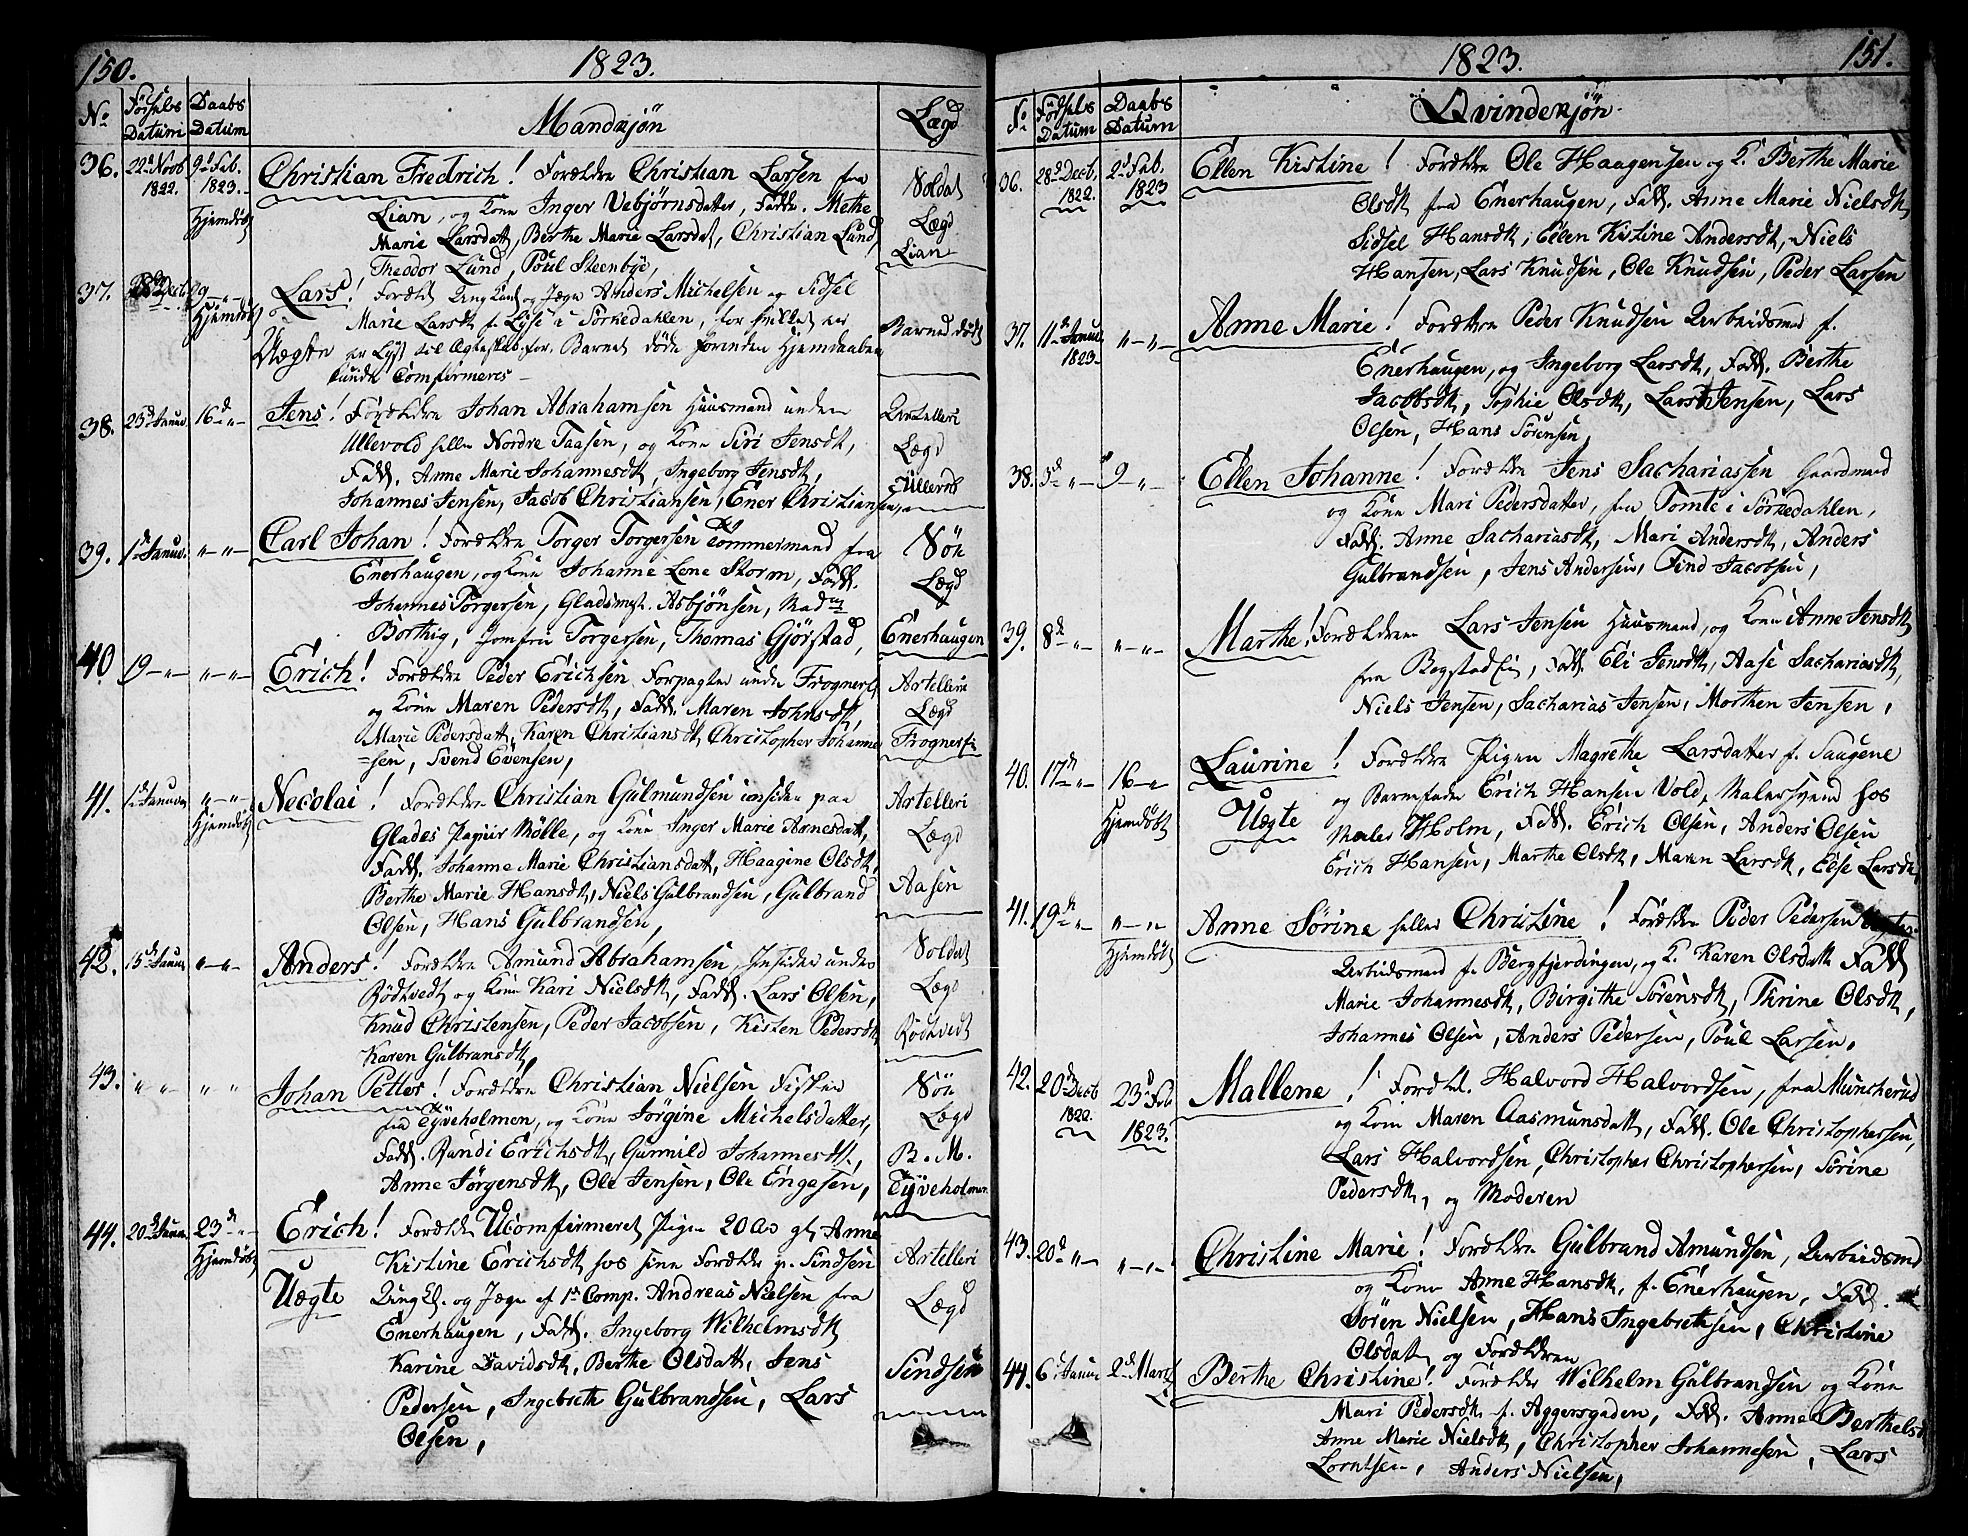 150.
1823.
No
Fødsels Datum
Daabs Datum
Mandkjön
Lægd
36. 22d Novb 1822. 9d Feb. 1823. Hjemdöbt
Christian Fredrich! Forældre Christian Larsen fra
Lian, og Kone Inger Vebjörnsdatter, Fadd. Methe
Marie Larsdatt, Berthe Marie Larsdat, Christian Lund,
Theodor Lund, Poul Steenbye,
Soldat Lægd Lian
37. Decb 9 „ Hjemdöbt
Lars! Forældre Ungkarl og Jæger Anders Michelsen og Sidsel
Marie Larsdt f. Lÿse i Sörkedahlen,
Uægte
til Ægteskab. Barnet döde forinden Hjemdaaben
kunde Comfirmeres
Barnet dödt
38. 23d Januar 16d „
Jens! Forældre Johan Abrahamsen Huusmand under
Ullevold heller Nordre Taasen, og Kone Siri Jensdt,
Fadd. Anne Marie Johannesdt, Ingeborg Jensdt,
Johannes Jensen, Jacob Christiansen, Ener Christiansen,
Artelleri Lægd Ullevold
39. 1r Januar. „ „
Carl Johan! Forældre Torger Torgersen Tömmermand fra
Enerhaugen, og Kone Johanne Lene Storm, Fadd.
Johannes Torgersen, Gladsmst. Asbjönsen, Madm
Borthig, Jomfru Torgersen, Thomas Gjörstad,
Söe Lægd Enerhaugen
40 19 „ „ „
Erich! Forældre Peder Erichsen Forpagter under Frogner
og Kone Maren Pedersdt, Fadd. Maren Johnsdt,
Marie Pedersdatt, Karen Christiansdt Christopher Johanne
=sen, Svend Evensen,
Artelleri Lægd Frogner
41. 1d Januar „ „ Hjemdöbt
Necolai! Forældre Christian Gulmundsen insider paa
Glades Papiir Mölle, og Kone Inger Marie Arnesdatt,
Fadd. Johanne Marie Christiansdatt, Haagine Olsdt,
Berthe Marie Hansdt, Niels Gulbrandsen, Gulbrand
Olsen, Hans Gulbrandsen,
Artelleri Lægd Aasen
42. 15d Januar „ „
Anders! Forældre Amund Abrahamsen, Insider under
Rödtvedt og Kone Kari Nielsdt, Fadd. Lars Olsen,
Knud Christensen, Peder Jacobsen, Kisten Pedersdt
Karen Gulbransdt,
Soldat Lægd Rödtvedt
43. „ „ „ „
Johan Petter! Forældre Christian Nielsen Fisker
fra Tÿveholmen, og Kone Jörgine Michelsdatter,
Fadd. Randi Erichsdt, Gunnild Johannesdt,
Anne Jörgensdt, Ole Jensen, Ole Engesen,
Söe Lægd B. M. Tÿveholmen
44. 20d Januar. 23d „ Hjemdöbt
Erich! Forældre Ucomfirmeret Pigen 20 Aar gl. Anne
Kistine Erichsdt hos sine Forældre p. Sindsen
Uægte
Ungkl. og Jæger af 1st Comp. Andreas Nielsen fra
Enerhaugen, Fadd. Ingeborg Wilhelmsdt
Karine Davidsdt, Berthe Olsdatt, Jens
Pedersen, Ingebreth Gulbrandsen, Lars
Olsen,
Artelleri Lægd Sindsen
1823.
151.
No
Födsels Datum
Daabs Datum
Qvindekjön
36. 28d Decb. 1822. 2d Feb. 1823
Ellen Kistine! Forældre Ole Haagensen og K. Berthe Marie
Olsdt fra Enerhaugen, Fadd. Anne Marie Nielsdt
Sidsel Hansdt, Ellen Kistine Andersdt, Niels
Hansen, Lars Knudsen, Ole Knudsen, Peder Larsen
37. 11d Januar 1823 „ „
Anne Marie! Forældre Peder Knudsen Arbeidsmd f.
Enerhaugen, og Ingeborg Larsdt, Fadd. Berthe
Jacobsdt, Sophie Olsdt, Lars Jensen, Lars
Olsen, Hans Sörensen,
38. 3d „ 9 „
Ellen Johanne! Forældre Jens Sachariassen Gaardmand
og Kone Mari Pedersdatter, fra Tomte i Sörkedahlen,
Fadd. Anne Sachariasdt, Mari Andersdt, Anders
Gulbrandsen, Jens Andersen, Find Jacobsen,
39. 8d „ „ „
Marthe! Forældrene Lars Jensen Huusmand, og Kone Anne Jensdt
fra Bogstad, Fadd Eli Jensdt, Aase Sachariasdt,
Niels Jensen, Sacharias Jensen, Morthen Jensen,
40. 17d „ 16 „ Hjemdöbt
Laurine! Forældre Pigen Magrethe Larsdatter f. Saugene
og Barnefader Erich Hansen Vold, Malersvend hos
Uægte
Maler Holm, Fadd. Erich Olsen, Anders Olsen
Erich Hansen, Marthe Olsdt, Maren Larsdt, Else Larsdt
41. 19d „ „ „ Hjemdöbt
Anne Sörine heller Christine! Forældre Peder Pedersen
Arbeidsmand f. Bergfjerdingen, og K. Karen Olsdatt Fadd
Marie Johannesdt, Birgithe Sörensdt, Thrine Olsdt,
Johannes Olsen, Anders Pedersen, Poul Larsen,
42. 20d Decb 1822. 23d Feb 1823.
Mallene! Forældr. Halvord Halvordsen, fra Muncherud
og Kone Maren Aasmunsdatt, Fadd. Ole Christophersen,
Lars Halvordsen, Christopher Christophersen, Sörine
Pedersdt, og Moderen
43. 20d „ „ „
Christine Marie! Forældre Gulbrand Amundsen, Arbeidsmd
og Kone Anne Hansdt, f. Enerhaugen, Fadd.
Sören Nielsen, Hans Ingebretsen, Christine
Olsdatt og Forældrene
44. 6d Januar 2d Marts
Berthe Christine! Forældre Wilhelm Gulbrandsen og Kone
Mari Pedersdt f. Aggersgaden, Fadd. Anne Berthelsdt
Anne Marie Nielsdt, Christopher Johannesen, Lars
Lorntsen, Anders Nielsen,